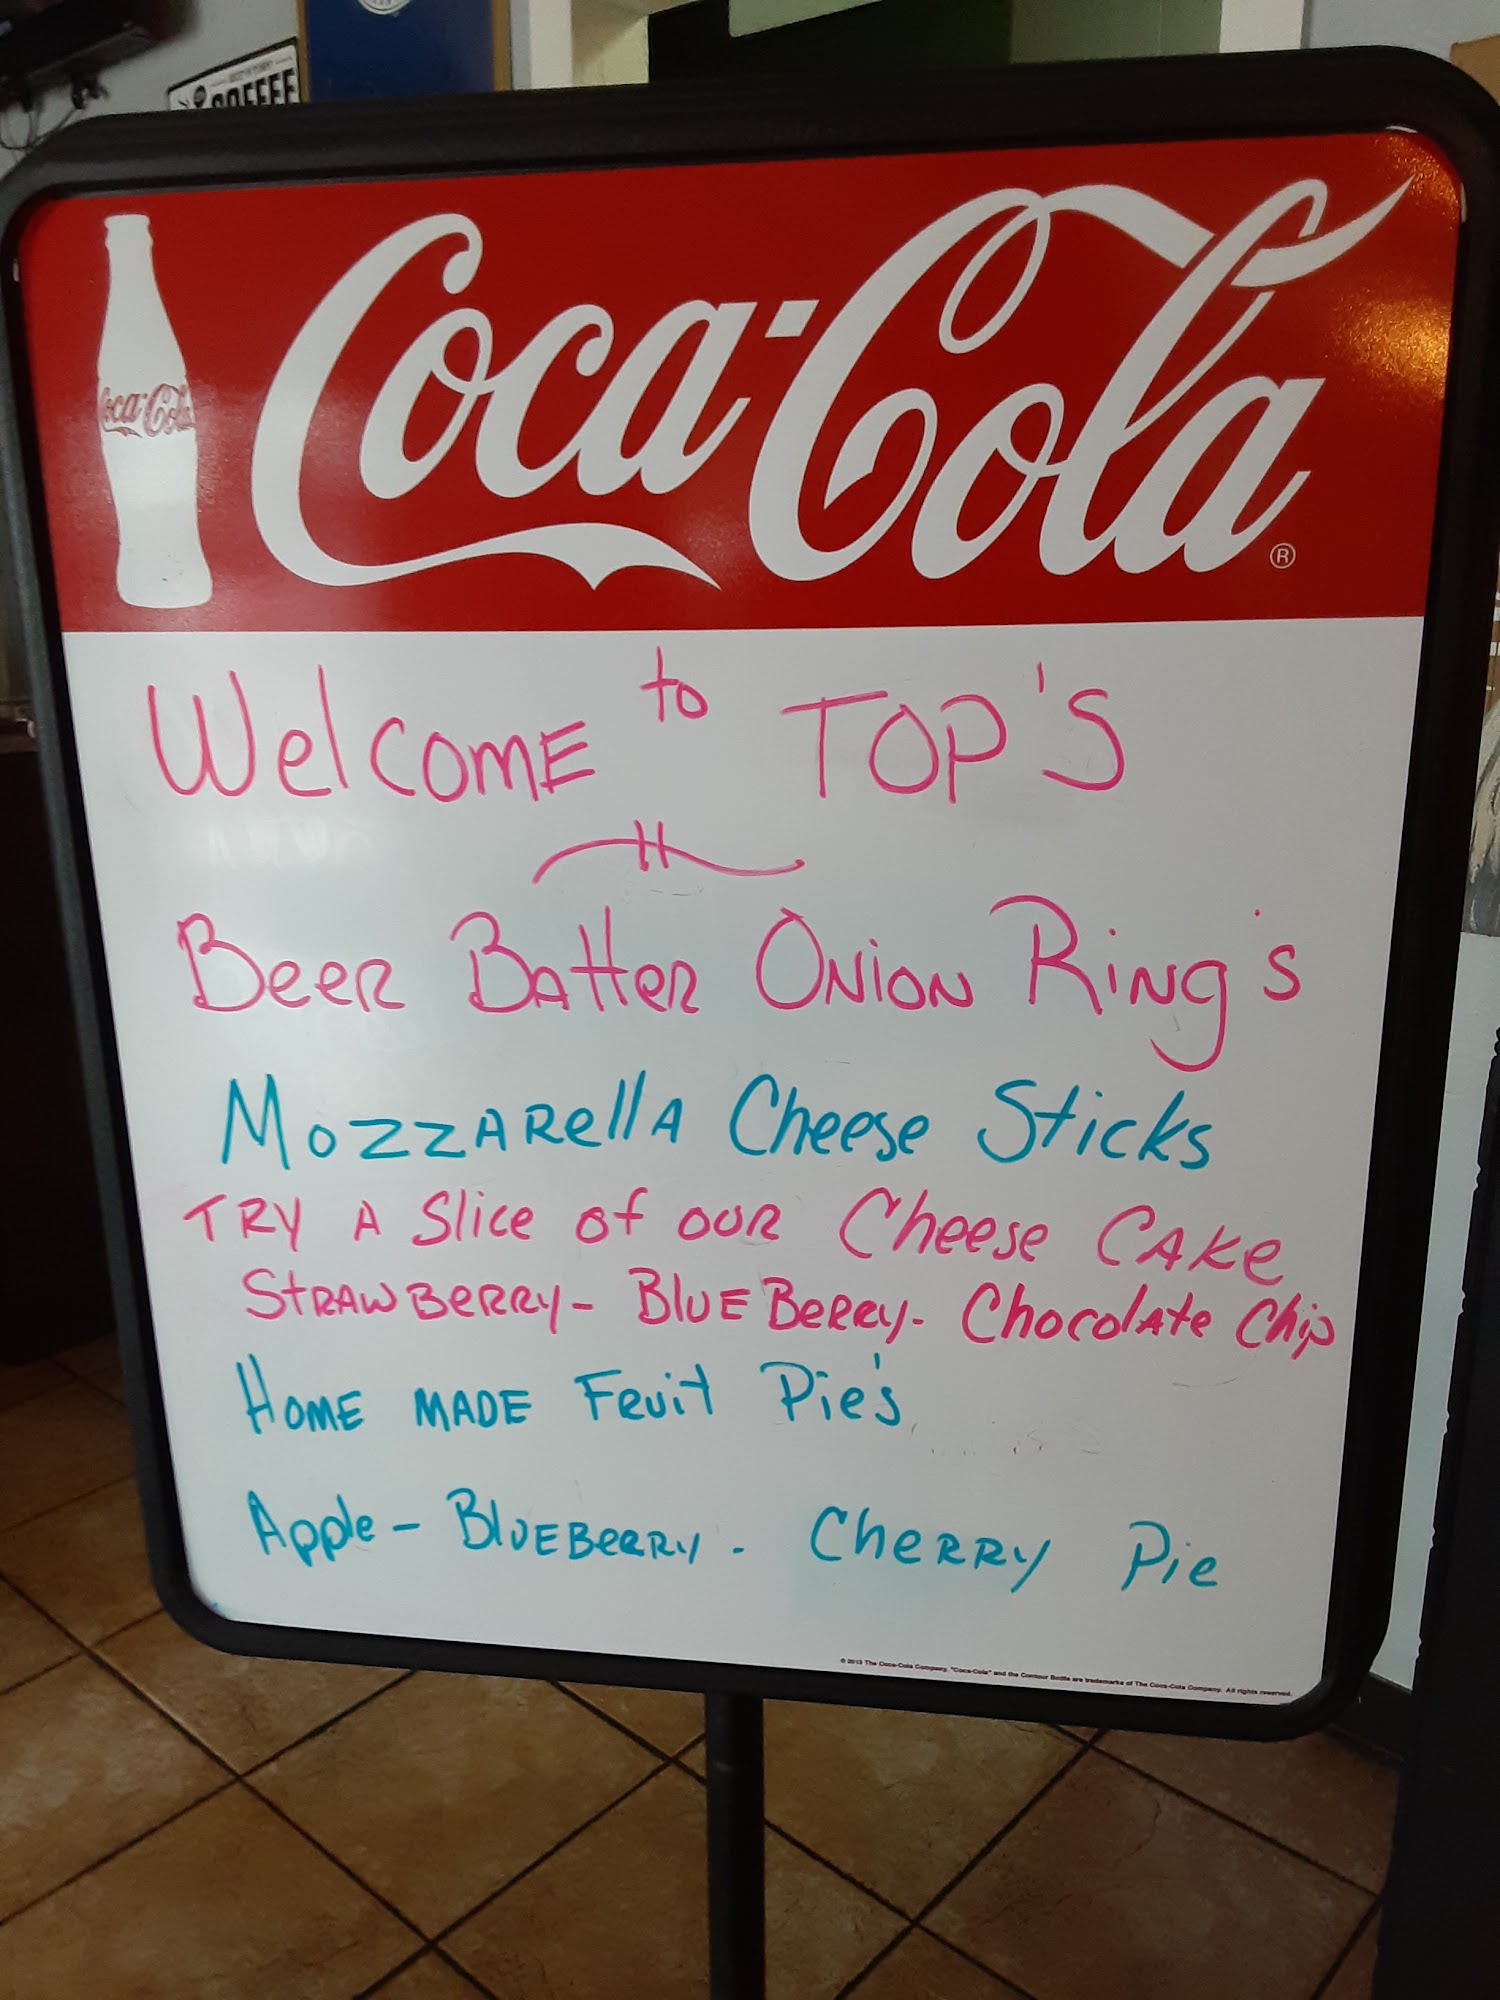 COFFEE
Coca-Cola
Coca-Cola ®
Welcome to TOP'S
Beer Batter Onion Ring's
Mozzarella Cheese Sticks
Try A Slice of our Cheese Cake
Strawberry - BlueBerry - Chocolate Chip
Home made Fruit Pie's
Apple - BlueBerry - Cherry Pie
© 2013 The Coca-Cola Company. "Coca-Cola" and the Contour Bottle are trademarks of The Coca-Cola Company. All rights reserved.